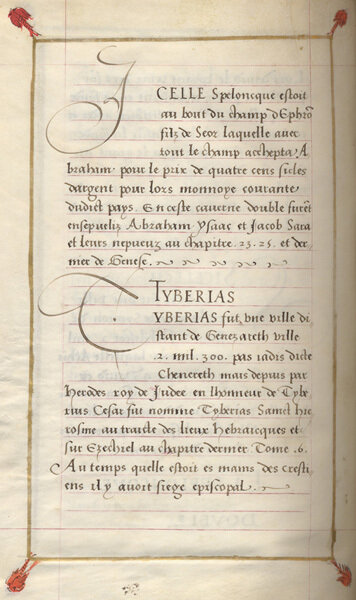 ICELLE Speloncque estoit
au bout du champ dEphrō
filz de Seor laquelle avec
tout le champ acchepta A
braham pour le prix de quatre cens sicles
dargent pour lors monnoye courante
dudict pays. En ceste caverne double furēt
ensepveliz Abraham Ysaac et Jacob Sara
et leurs nepveuz au chapitre. 23. 25. et der
nier de Genese.
TYBERIAS
TYBERIAS fut une ville di
stant de Genezareth ville
2. mil. 300. pas iadis dicte
Chenereth mais depuis par
Herodes roy de Judee en lhonneur de Tybe
rius Cesar fut nommé Tyberias Sainct Hie
rosme au traicte des lieux Hebraicques et
sur Ezechiel au chapitre dernier. Tome .6.
Au temps quelle estoit es mains des cresti
ens il y avoit siege episcopal.